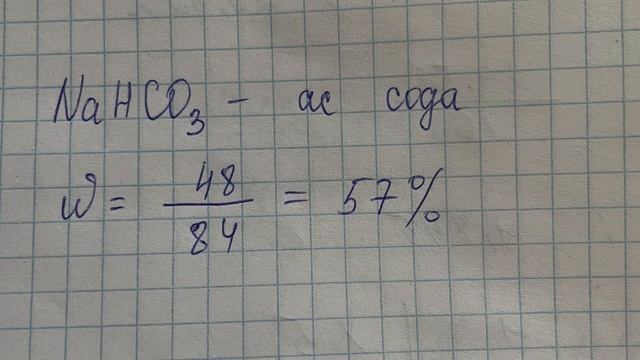 NaHCO₃ - ас сода
W = 48/84 = 57%